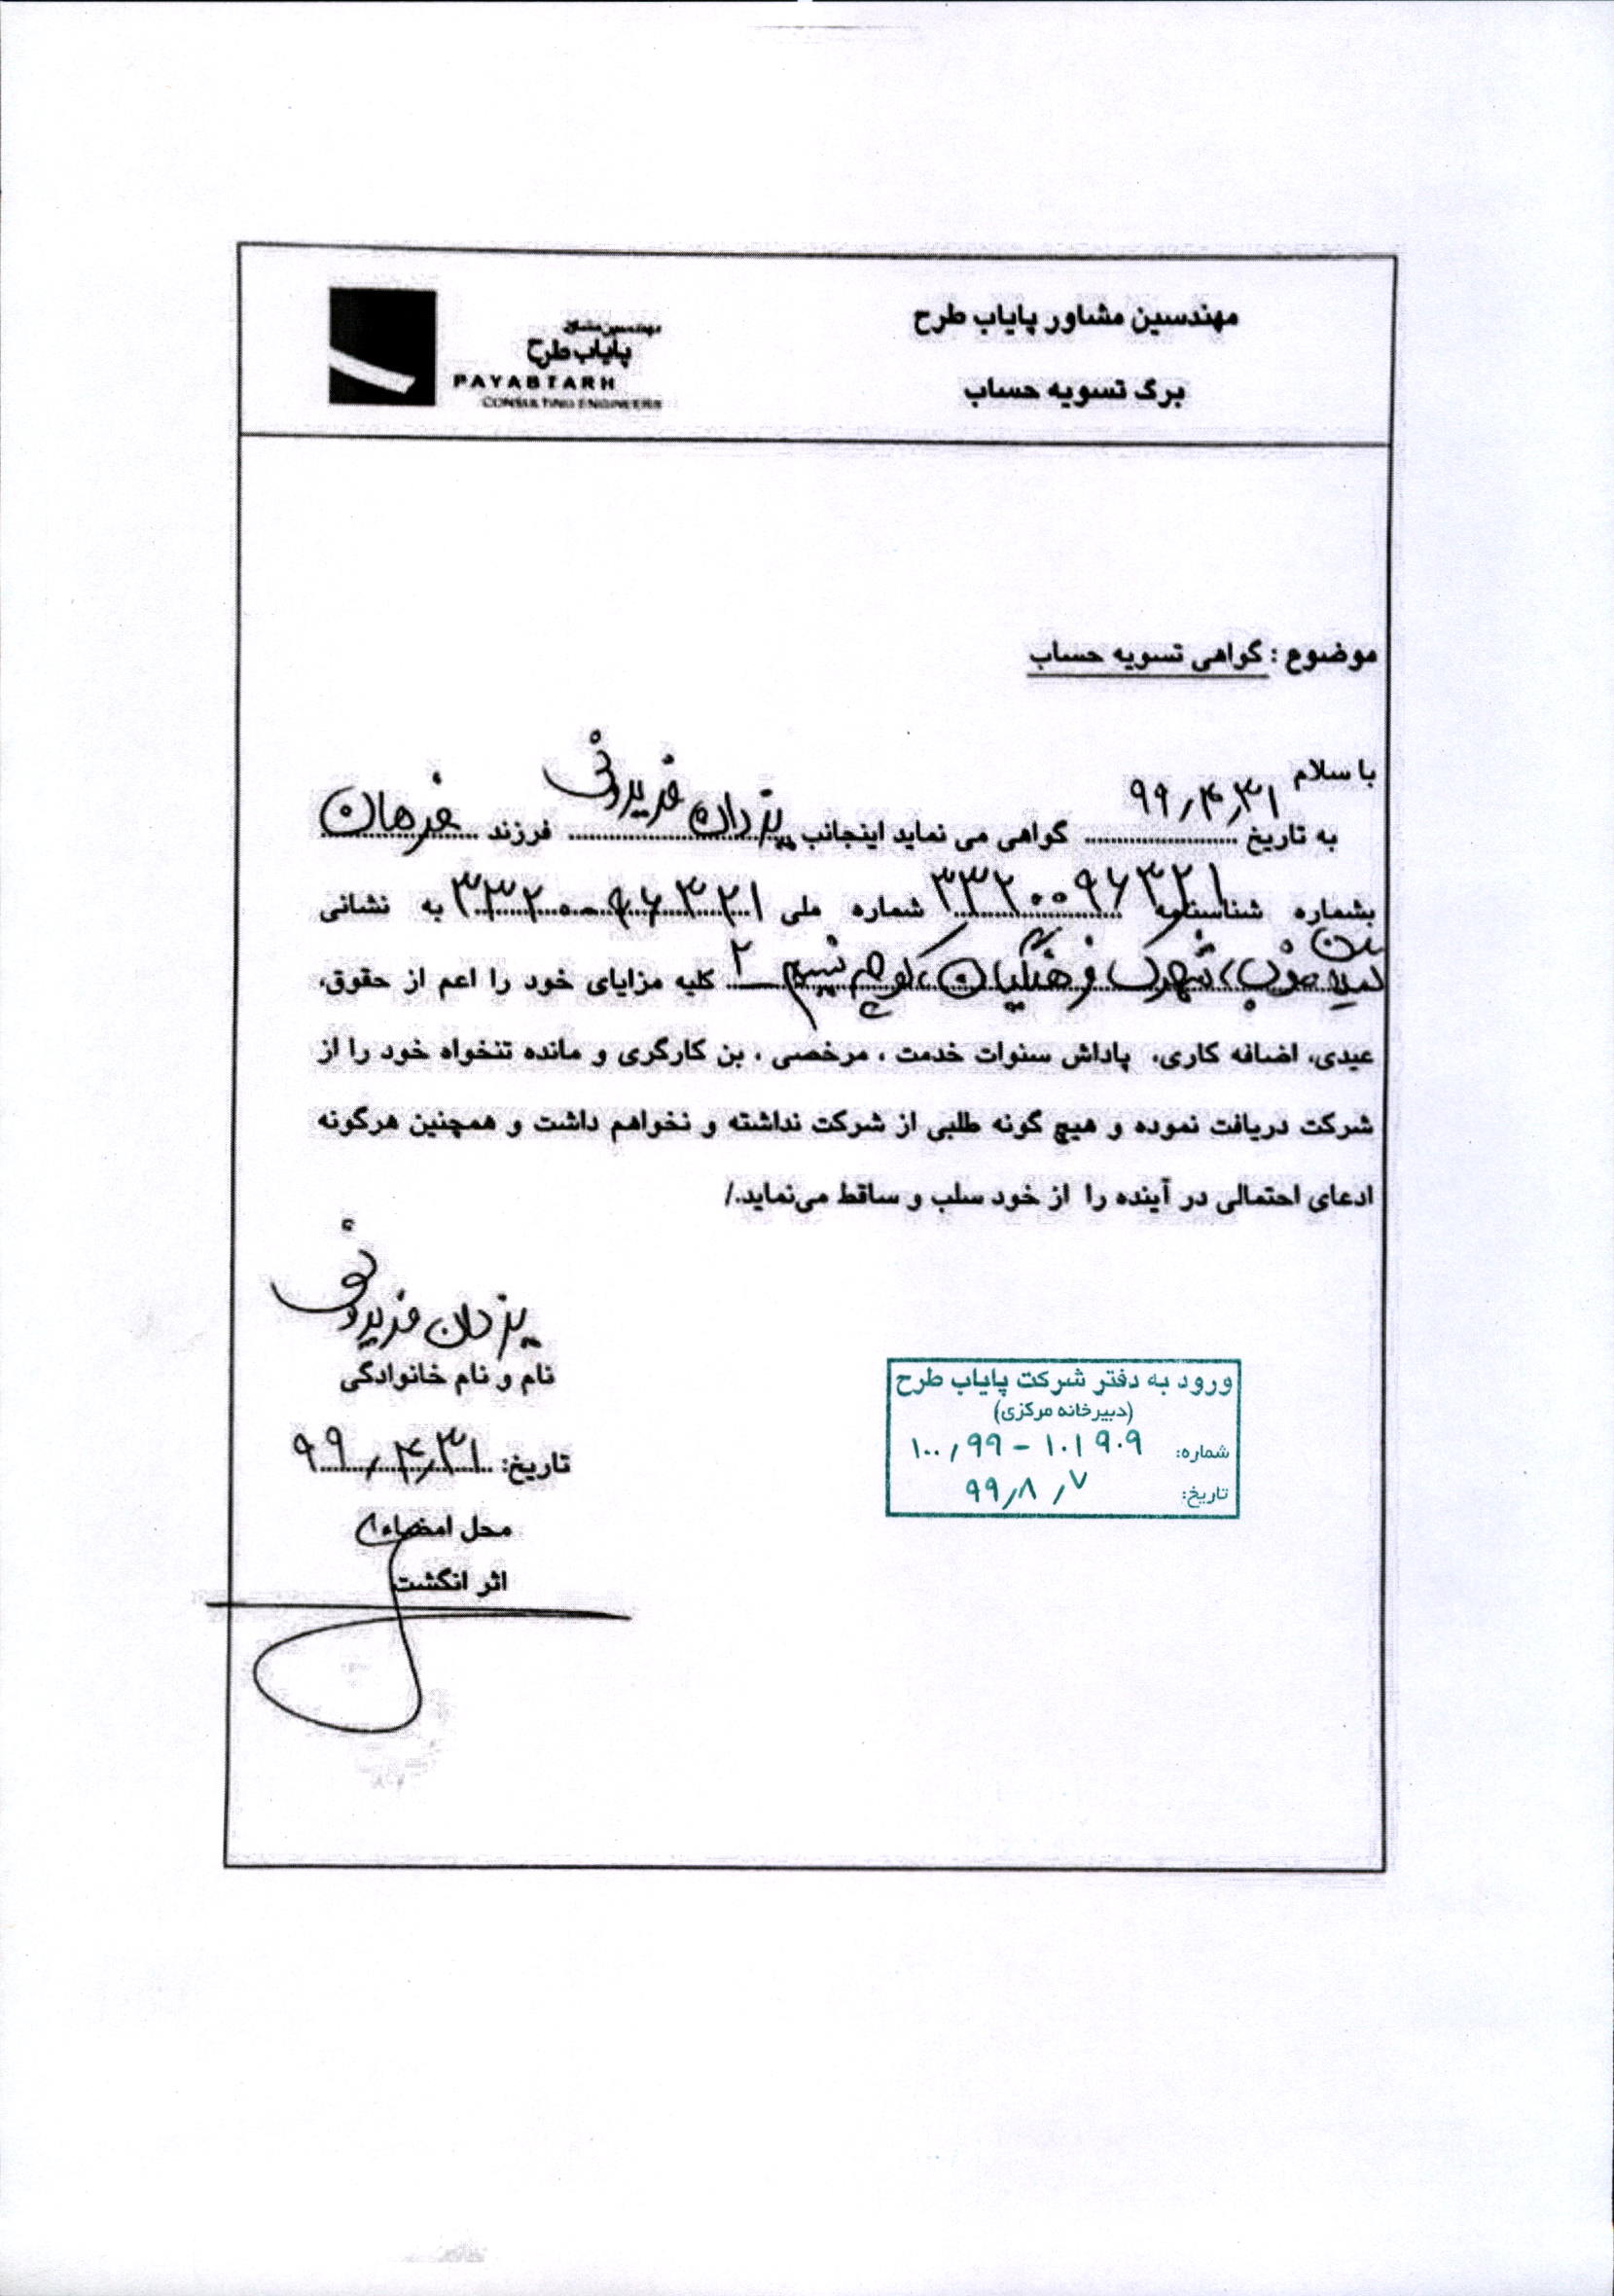 مهندسین مشاور پایاب طرح
برگ تسویه حساب
مهندسین مشاور
پایاب طرح
PAYABTARH
CONSULTING ENGINEERS
موضوع : گواهی تسویه حساب
با سلام
به تاریخ ۹۹/۴/۳۱ گواهی می نماید اینجانب یزدان فریدونی فرزند فرهان
بشماره شناسنامه ۳۳۲۰۰۹۶۳۲۱ شماره ملی ۳۳۲۰۰۹۶۳۲۱ به نشانی
شهرک فرهنگیان، کوچه نسیم ۲ کلیه مزایای خود را اعم از حقوق،
عیدی، اضافه کاری، پاداش سنوات خدمت ، مرخصی ، بن کارگری و مانده تنخواه خود را از
شرکت دریافت نموده و هیچ گونه طلبی از شرکت نداشته و نخواهم داشت و همچنین هرگونه
ادعای احتمالی در آینده را از خود سلب و ساقط می‌نماید./
یزدان فریدونی
نام و نام خانوادگی
تاریخ: ۹۹/۴/۳۱
محل امضاء
اثر انگشت
ورود به دفتر شرکت پایاب طرح
(دبیرخانه مرکزی)
شماره: ۱۰۰/۹۹ - ۱۰۱۹۰۹
تاریخ: ۹۹/۸/۷